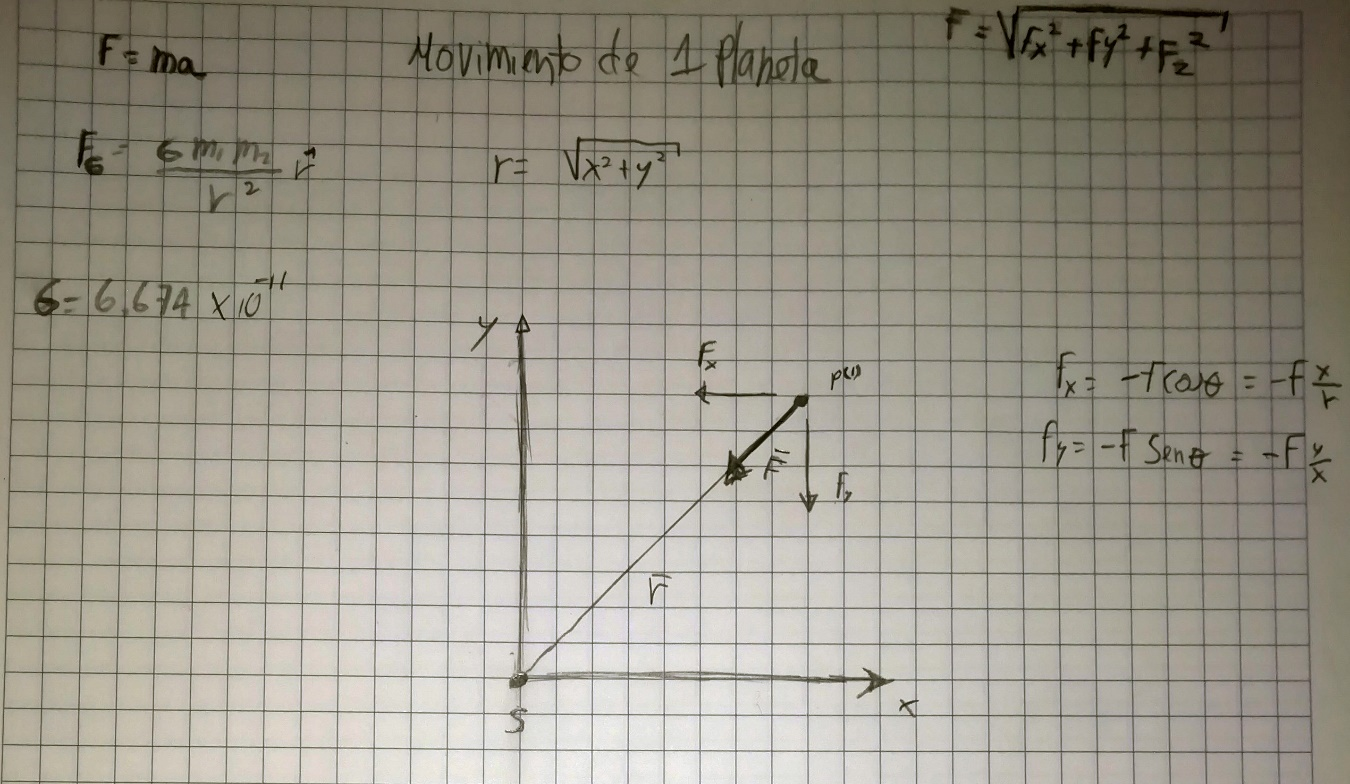 F = ma
Movimiento de 1 Planeta
F = √(Fx² + Fy² + Fz²)
F_G = G m₁ m₂ / r² r̂
r = √(x² + y²)
G = 6.674 × 10⁻¹¹
y
Fx
P(1)
fx = -f cosθ = -f x/r
fy = -f Senθ = -F y/x
F̄
Fy
r̄
S
x